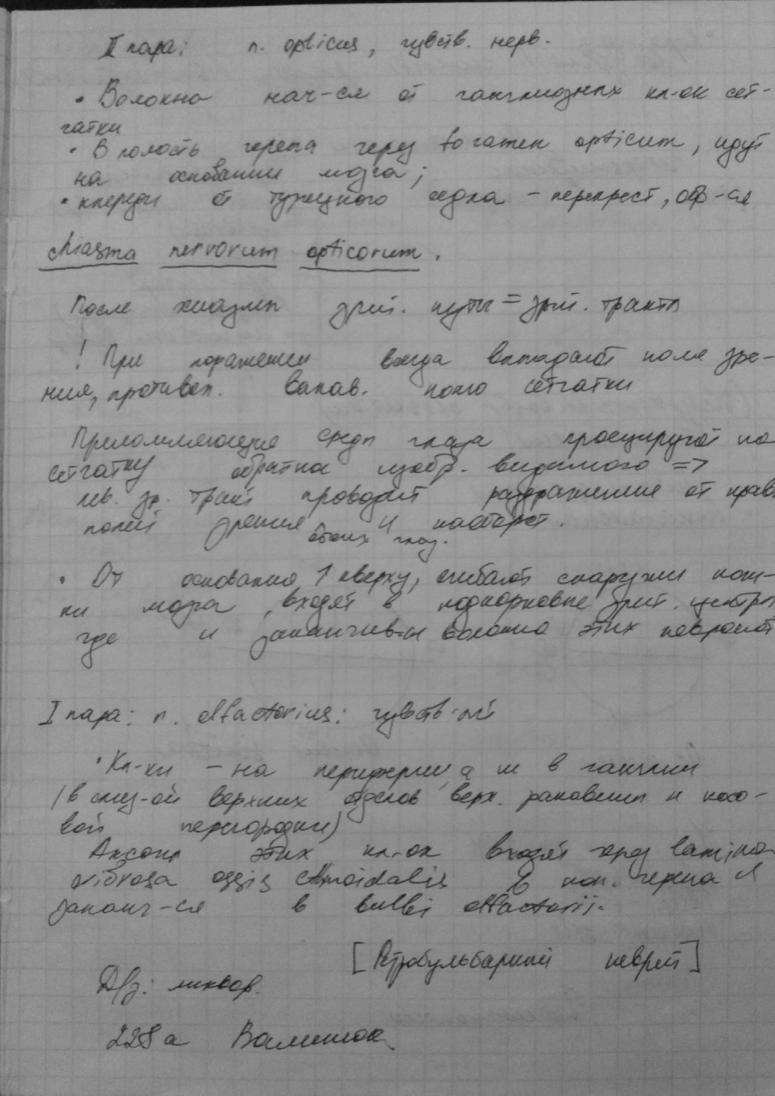 II пара: n. opticus, чувств. нерв.
• Волокна нач-ся от ганглиозных кл-ок сет-
чатки
• В полость черепа через foramen opticum, идут
на основании мозга;
• кпереди от турецкого седла – перекрест, обр-ся
chiasma nervorum opticorum.
После хиазмы зрит. путы = зрит. тракты
! При поражении всегда выпадают поля зре-
ния, противоп. полю сетчатки
Преломляющие среды глаза проецируют на
сетчатку обратное изобр. видимого =>
лев. зр. тракт проводит раздражение от прав.
полей зрения и наоборот.
обоих глаз.
• От основания ↑ кверху, огибают снаружи нож-
ки мозга, входят в подкорковые зрит. центры
где и заканчив-ся волокна этих невронов
I пара: n. olfactorius: чувств-ый
• Кл-ки – на периферии, а не в ганглии
(в слиз-ой верхних отделов верх. раковины и носо-
вой перегородки)
Аксоны этих кл-ок входят через lamina
cribrosa ossis ethmoidalis в пол. черепа и
заканч-ся в bulbi olfactorii.
[Ретробульбарный неврит]
Д/з: ликвор.
228а